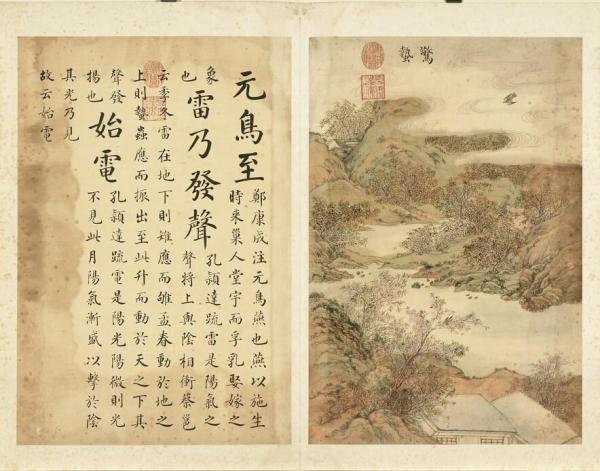 驚蟄
元鳥至
鄭康成注元鳥燕也燕以施生
時来巢人堂宇而孚乳娶嫁之
象
也
雷乃發聲
孔穎達疏雷是陽氣之
聲將上與陰相衝蔡邕
云季冬雷在地下則雉應而雊孟春動於地之
上則蟄蟲應而振出至此升而動於天之下其
聲發
揚也
始電
孔穎達疏電是陽光陽微則光
不見此月陽氣漸盛以擊於陰
其光乃見
故云始電